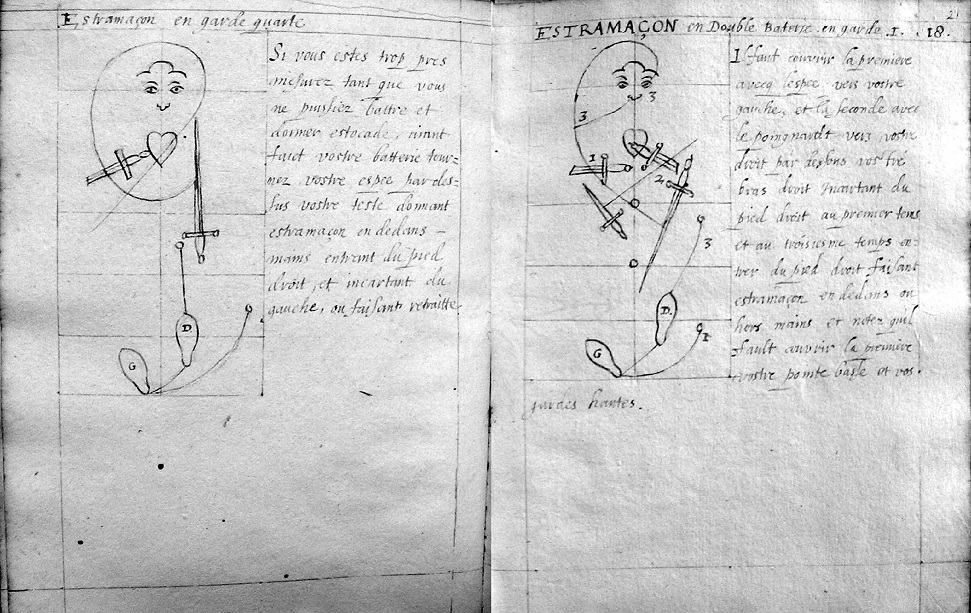 Estramaçon en garde quarte
Si vous estes trop pres
mesurez tant que vous
ne puissiez battre et
donner estocade, aiant
faict vostre batterie tour=
nez vostre espee par des=
sus vostre teste donnant
estramaçon en dedans
mains entrant du pied
droit, et incartant du
gauche, ou faisant retraitte.
D.
G
21
ESTRAMAÇON en Double Baterie en garde .1. .18.
Il faut couvrir la premiere
avecq lespee vers vostre
gauche, et la seconde avec
le poingnardt vers vostre
droit par dessous vostre
bras droit incartant du
pied droit au premier tems
et au troisiesme temps en=
trer du pied droit faisant
estramaçon en dedans ou
hors mains et notez quil
fault couvrir la premiere
vostre pointe basse et vos
gardes hautes.
3
3
1
2
3
D.
1
G